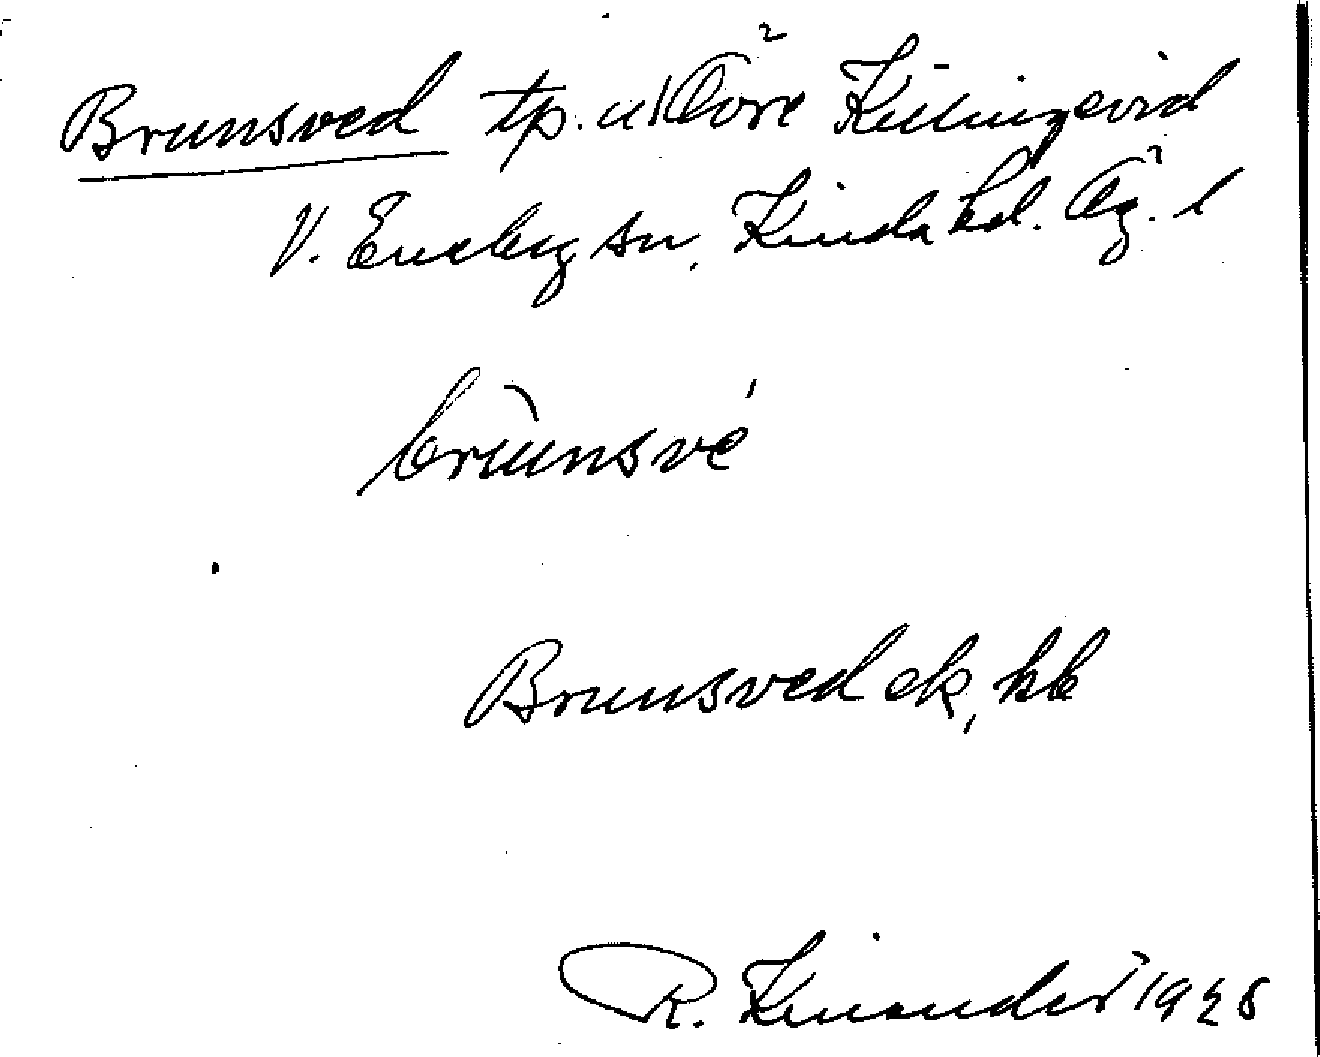 Brunsved tp. u/ Övre Killingevid
V. Eneby sn, Kinda hd. Ög. l
brunsvé
Brunsved ek, hb
R. Kinander 1926